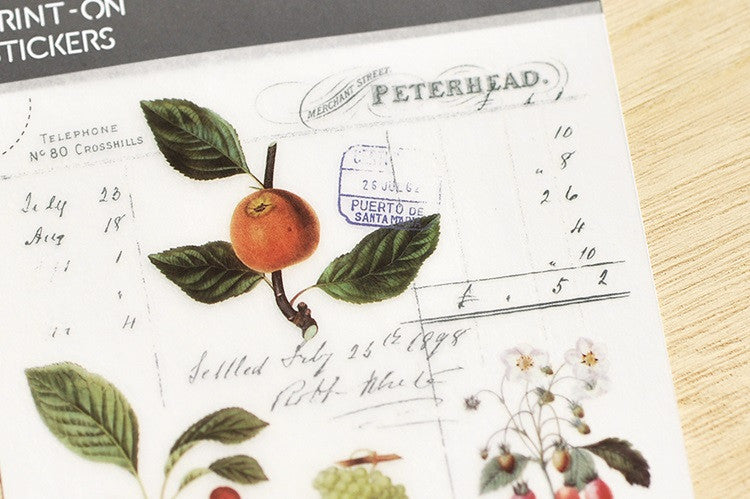 RINT-ON
STICKERS
MERCHANT STREET
PETERHEAD.
TELEPHONE
No 80 CROSSHILLS
£ 1
10
" 8
2 6
4
" 10
£ . 5 2
July 23
Aug 18
" 1
"
" 4
26 JUL 62
PUERTO DE
SANTA MARIA
Settled July 25th 1898
Robt